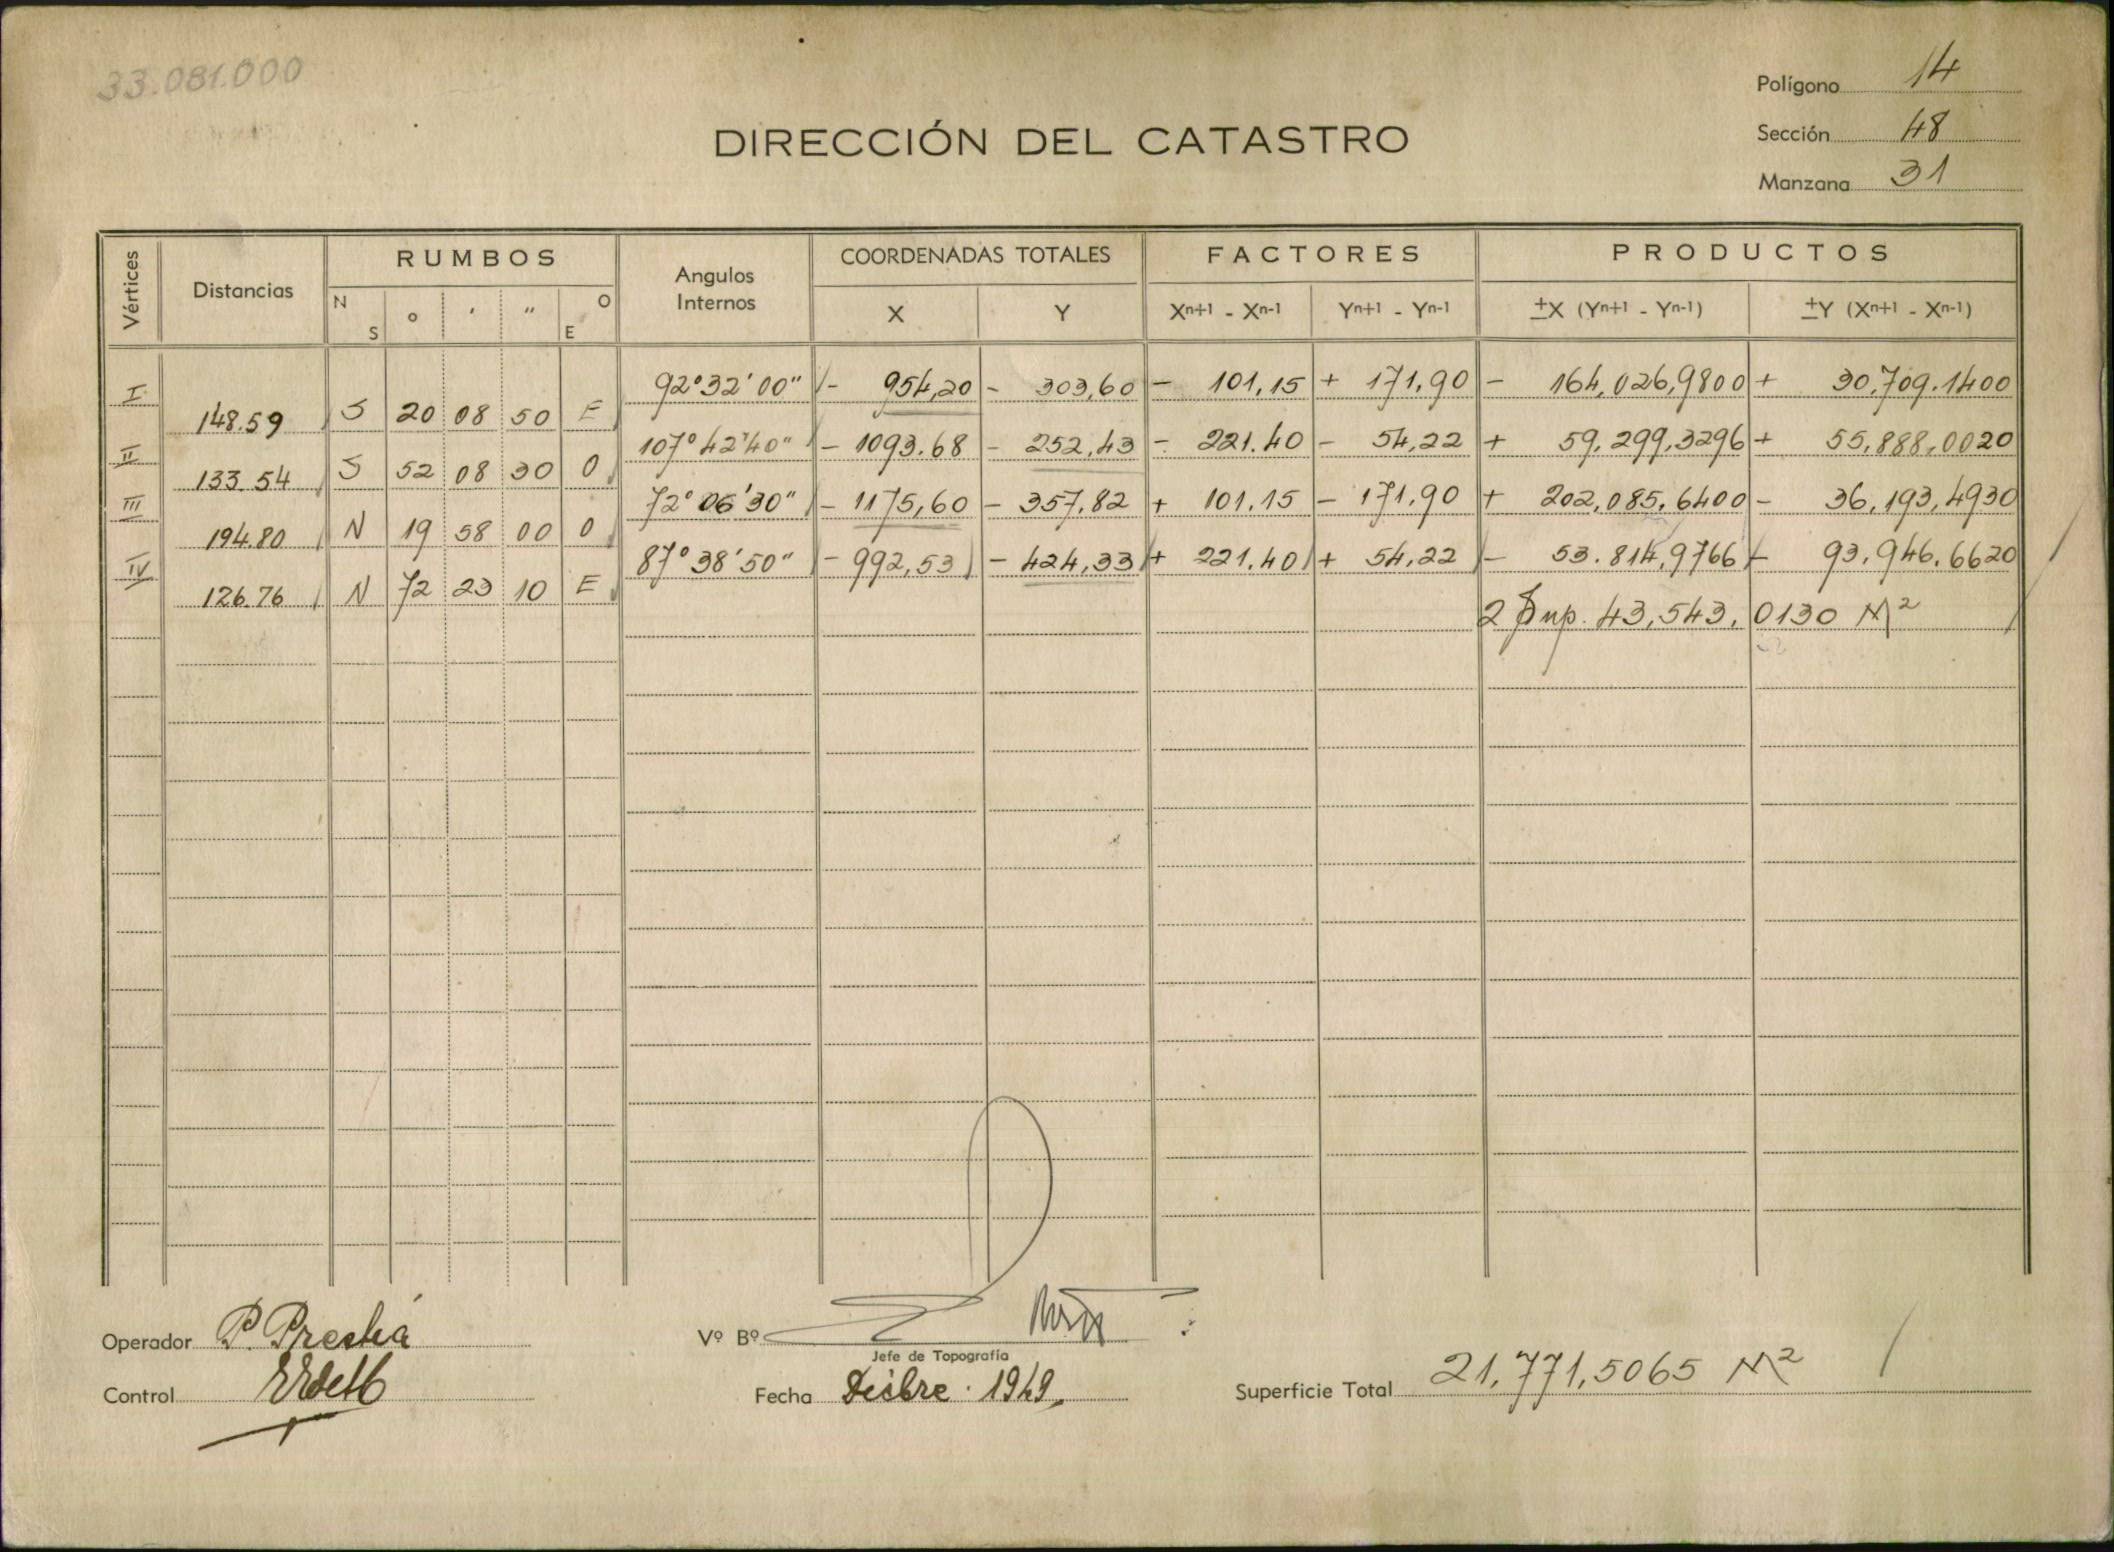 33.081.000
Polígono 14
DIRECCIÓN DEL CATASTRO
Sección 48
Manzana 31
Vértices Distancias RUMBOS Angulos Internos COORDENADAS TOTALES FACTORES PRODUCTOS
N S ° ' " O E X Y Xn+1 - Xn-1 Yn+1 - Yn-1 ±X (Yn+1 - Yn-1) ±Y (Xn+1 - Xn-1)
I 92°32'00" - 954,20 - 303,60 - 101,15 + 171,90 - 164,026,9800 + 30,709.1400
148.59 S 20 08 50 E
II 107°42'40" - 1093.68 - 252,43 - 221.40 - 54,22 + 59,299,3296 + 55,888,0020
133.54 S 52 08 30 O
III 72°06'30" - 1175,60 - 357,82 + 101.15 - 171.90 + 202,085,6400 - 36,193,4930
194.80 N 19 58 00 O
IV 87°38'50" - 992,53 - 424,33 + 221.40 + 54,22 - 53.814,9766 - 93,946.6620
126.76 N 72 23 10 E
2 Sup. 43,543,0130 M²
Operador P. Prestiá
Vº Bº
Jefe de Topografía
Control
Fecha Dicbre. 1949.
Superficie Total 21,771,5065 M²